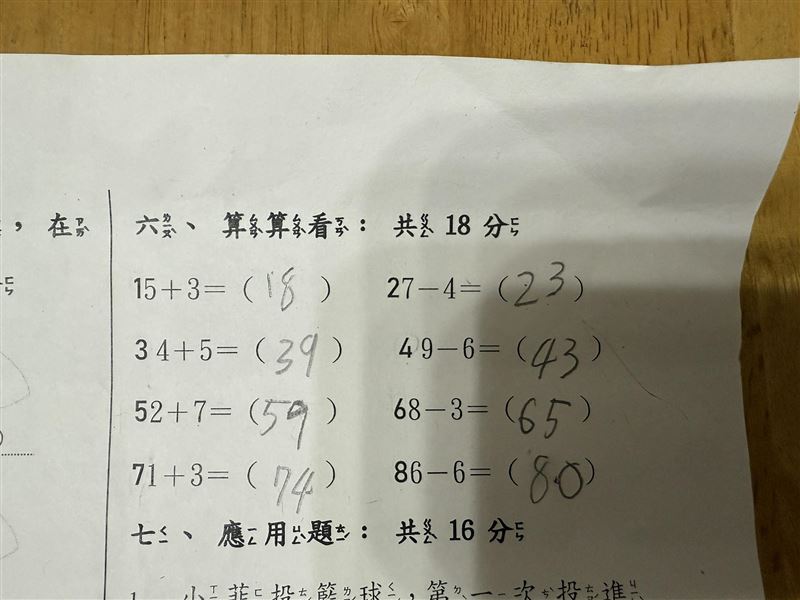 ，在ㄗㄞˋ
六ㄌㄧㄡˋ、算ㄙㄨㄢˋ算ㄙㄨㄢˋ看ㄎㄢˋ：共ㄍㄨㄥˋ18分ㄈㄣ
15+3=（18）　27－4=（23）
34+5=（39）　49－6=（43）
52+7=（59）　68－3=（65）
71+3=（74）　86－6=（80）
七ㄑㄧ、應ㄧㄥˋ用ㄩㄥˋ題ㄊㄧˊ：共ㄍㄨㄥˋ16分ㄈㄣ
1. 小ㄒㄧㄠˇ菲ㄈㄟ投ㄊㄡˊ籃ㄌㄢˊ球ㄑㄧㄡˊ，第ㄉㄧˋ一ㄧ次ㄘˋ投ㄊㄡˊ進ㄐㄧㄣˋ